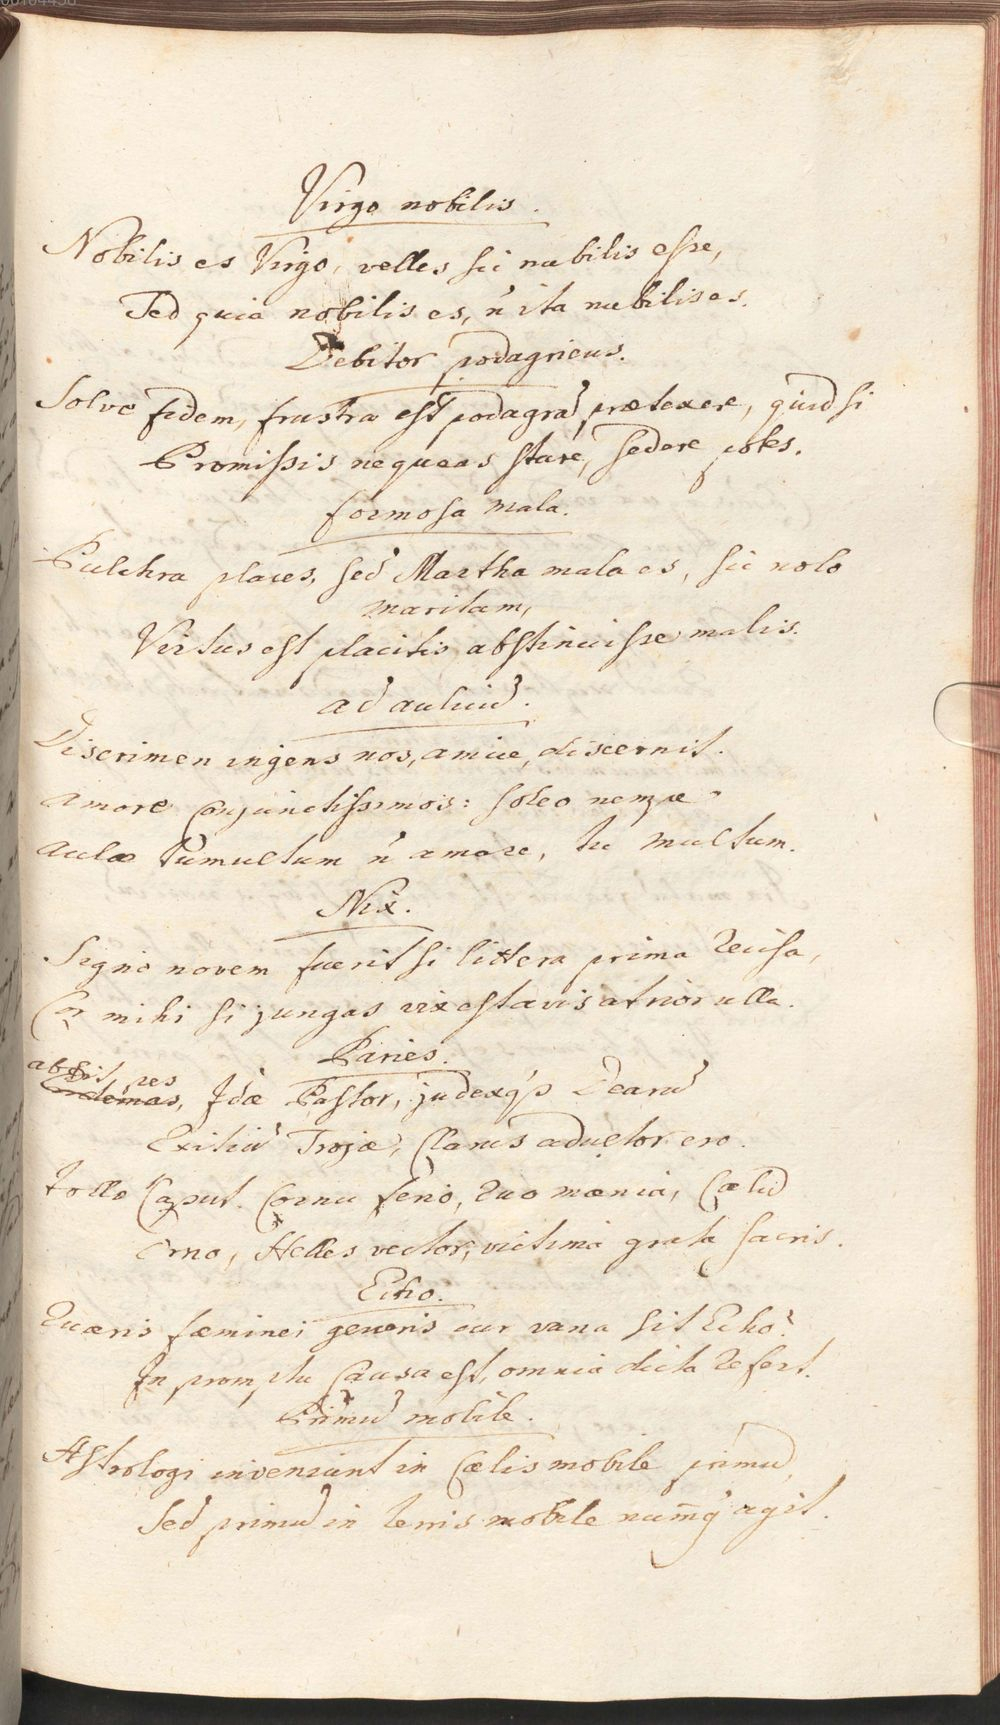 Virgo nobilis.
Nobilis es Virgo, velles sic nubilis esse,
Sed quia nobilis es, n̄ ita nubilis es.
Debitor podagricus.
Solve fidem, frustra est podagrā prætexere, quid si
Promissis nequeas stare, sedere potes.
formosa mala.
Pulchra places, sed Martha mala es, sic nolo
maritam,
Virtus est placitis abstinuisse malis.
ad aulicū.
Discrimen ingens nos, amice, discernit.
amore Conjunctissimos: soleo nempe
aulæ tumultum n̄ amare, tu multum.
Nix.
Signo novem fuerit si littera prima recisa,
Cor mihi si jungas vix est avis atrior ulla.
Paries.
absit, res
, Idæ Pastor, judexq̨ꝫ Dearū
Exitiū Trojæ, Clarus adulter ero.
tolle Caput. Cornu ferio, ruo mænia, Cælū
Orno, Helles vector, victima grata sacris.
Echo.
Quæris fæminei generis cur vana sit Echo?
In promptu Causa est, omnia dicta refert.
Primū mobile.
Astrologi inveniunt in Cælis mobile primū,
Sed primū in terris mobile num̄q̨ agit.